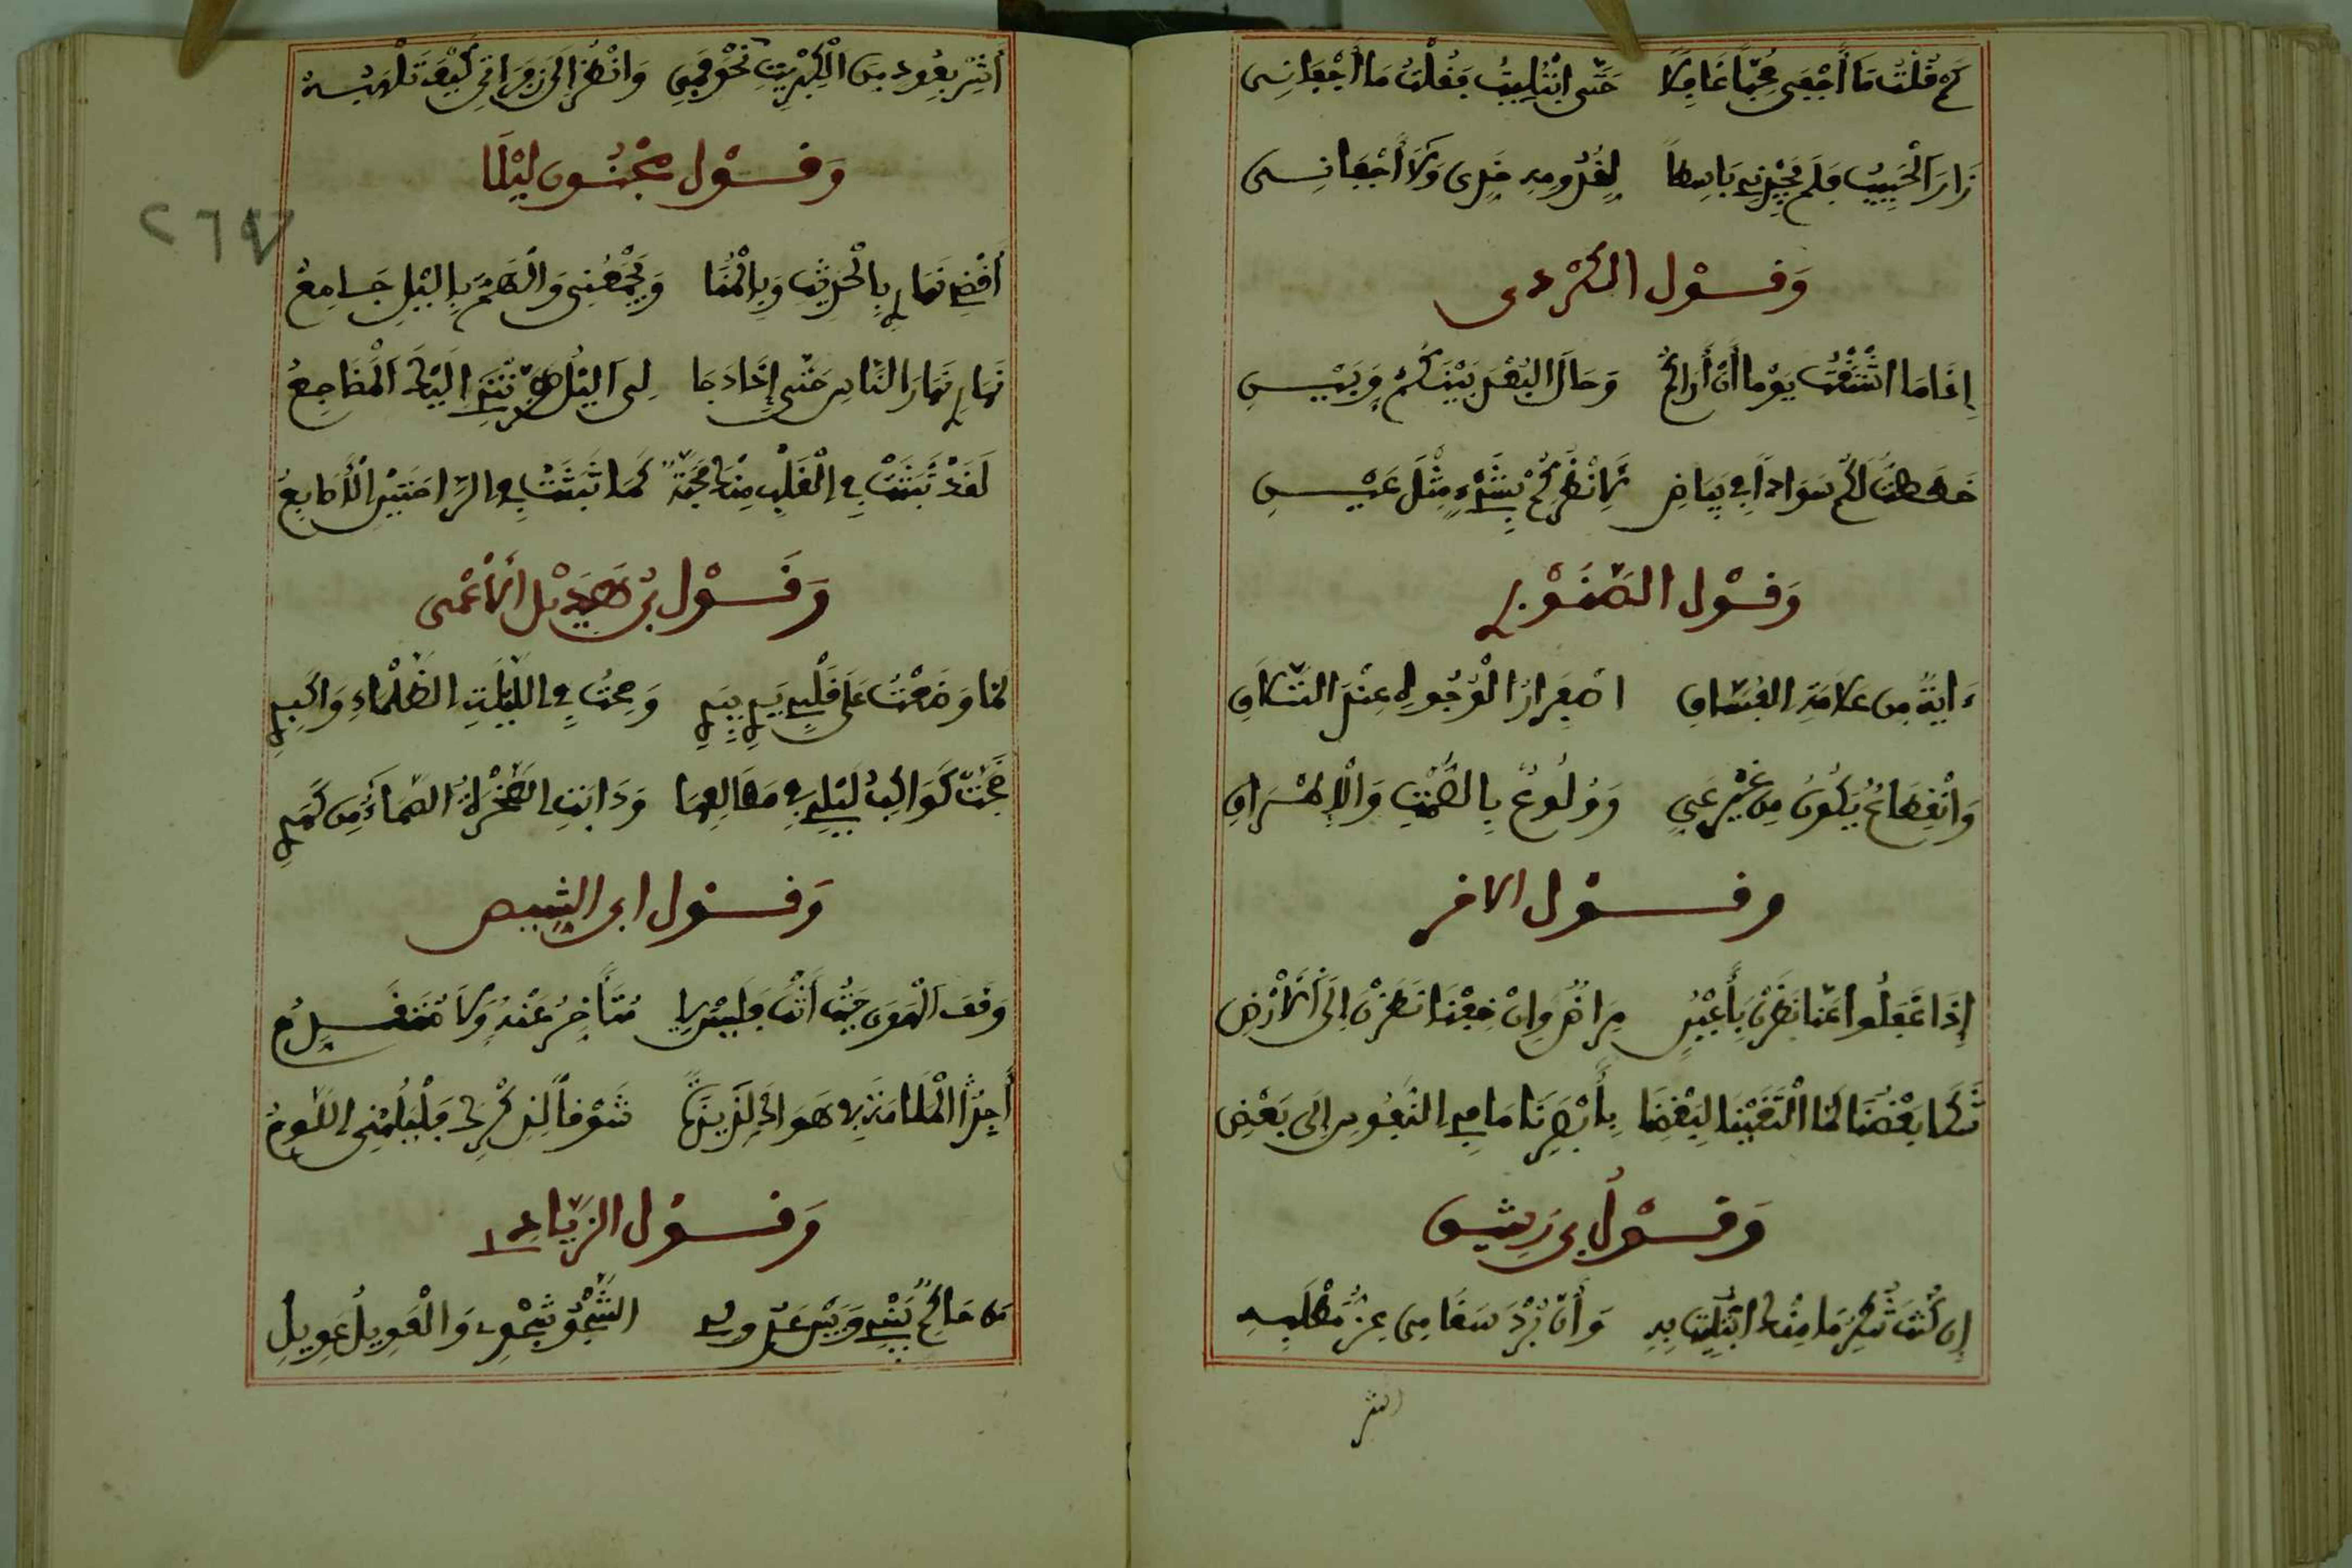 كم قلت ما أجفى محبا غافلا حتى ابتليت فقلت ما أجفانى
زار الحبيب فلم يجزنى باسطا لقدومه خدى ولا أجفانى
وقول الكردى
إذا ما اشتقت يوما أن أراكم وحال البعد بينكم وبينى
خططت لكم سوادا فى بياض لأنظركم بشىء مثل عينى
وقول الصنوبرى
ءاية من علامة العشاق اصفرار الوجوه عند التلاق
وانقطاع يكون من غير عى وولوع بالصمت والإطراق
وقول الاخر
إذا غفلوا عنا نظرن بأعين مراض وإن خفنا نظرن إلى الأرض
شكا بعضنا لما التقينا لبعضنا بأبصرنا ما فى النفوس إلى بعض
وقول بن رشيق
إن كنت تنكر ما منك ابتليت به وأن برد سقامى عز مطلبه
اشر
أشر بعود من الكبريت نحو فمى وانظر إلى زفراتى كيف تلهبه
وقول مجنون ليلا
أقضى نهارى بالحديث وبالمنا ويجمعنى والهم باليل جامع
نهارى نهار الناس حتى إذا دجا لى اليل هزتنى اليك المضاجع
لقد ثبتت فى القلب منك محبة كما ثبتت فى الراحتين الأصابع
وقول بن هذيل الأعمى
لما وضعت على قلبى يدى بيدى وصحت فى الليلة الظلماء واكبدى
ضجت كواكب ليلى فى مطالعها وذابت الصخرة الصماء من كمدى
وقول ابى الشيص
وقف الهوى حيث أنت فليس لى متأخر عنه ولا متقدم
أجد الملامة فى هواك لذيذة شوقا لذكرك فليلمنى اللوم
وقول الزيادى
ما صالح بينى وبين عذولى الشجو شجوى والعويل عويلى
٢٦٧